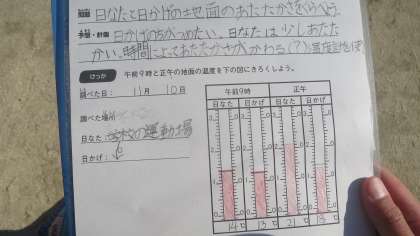 問題 日なたと日かげの地面のあたたかさをくらべよう。
予想・計画 日かげのちがつめたい、日なたは少しあたた
かい、時間によってあたたかさがかわる(?)
けっか 午前9時と正午の地面の温度を下の図にきろくしよう。
調べた日: 11月 10日
調べた場所
日なた: 学校の運動場
日かげ:
午前9時 正午
日なた 日かげ 日なた 日かげ
14 13 21 15